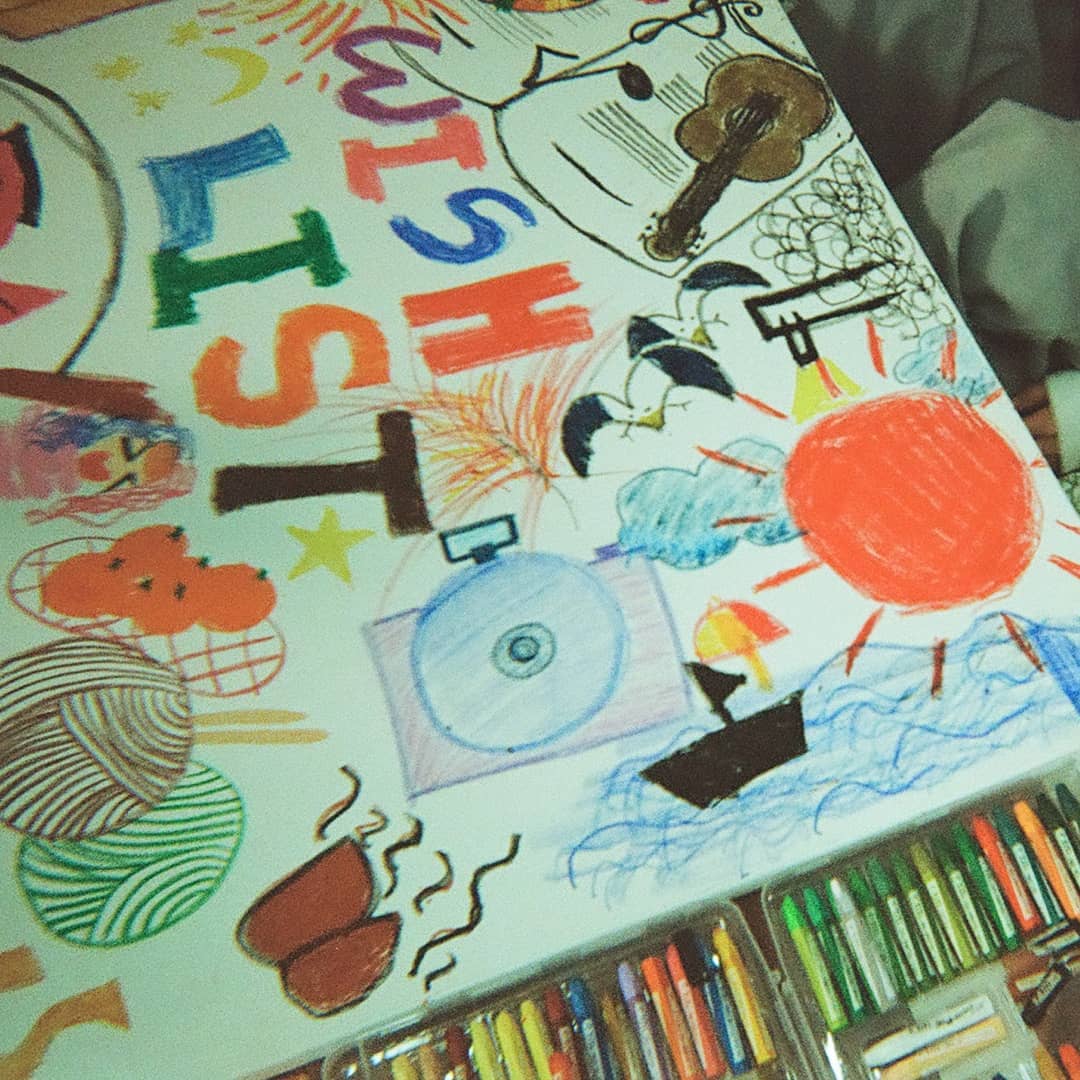 WISH
LIST